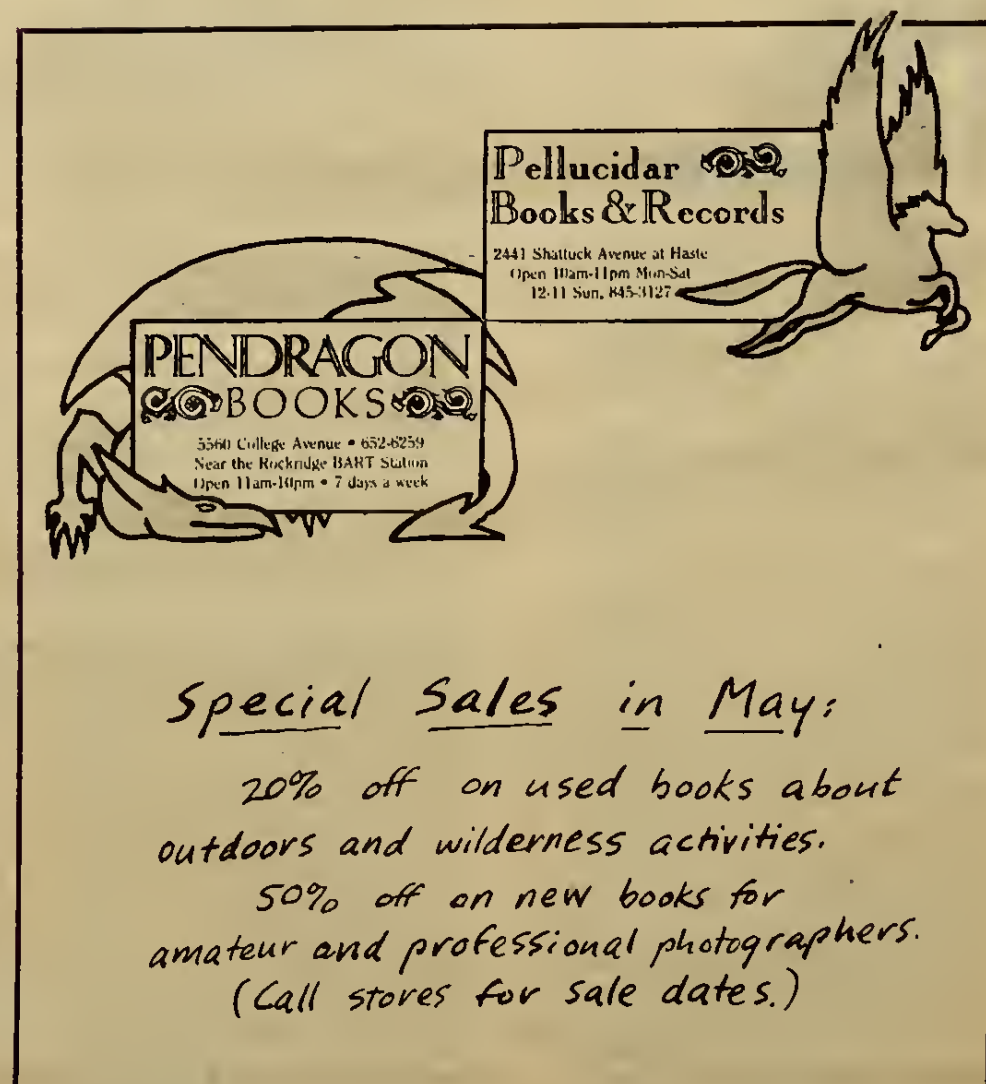 Pellucidar
Books & Records
2441 Shattuck Avenue at Haste
Open 10am-11pm Mon-Sat
12-11 Sun, 845-3127
PENDRAGON
BOOKS
5560 College Avenue • 652-6259
Near the Rockridge BART Station
Open 11am-10pm • 7 days a week
Special Sales in May:
20% off on used books about
outdoors and wilderness activities.
50% off on new books for
amateur and professional photographers.
(Call stores for sale dates.)